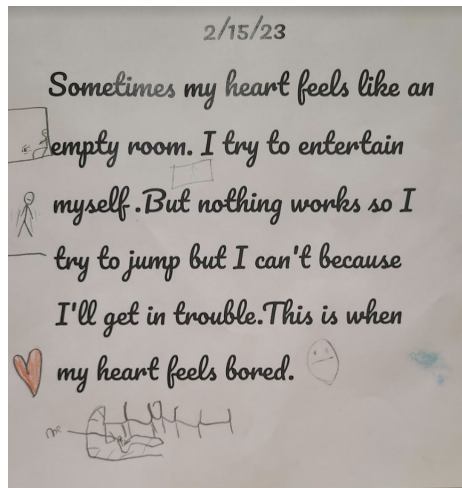 2/15/23
Sometimes my heart feels like an
empty room. I try to entertain
myself.But nothing works so I
try to jump but I can't because
I'll get in trouble.This is when
my heart feels bored.
me